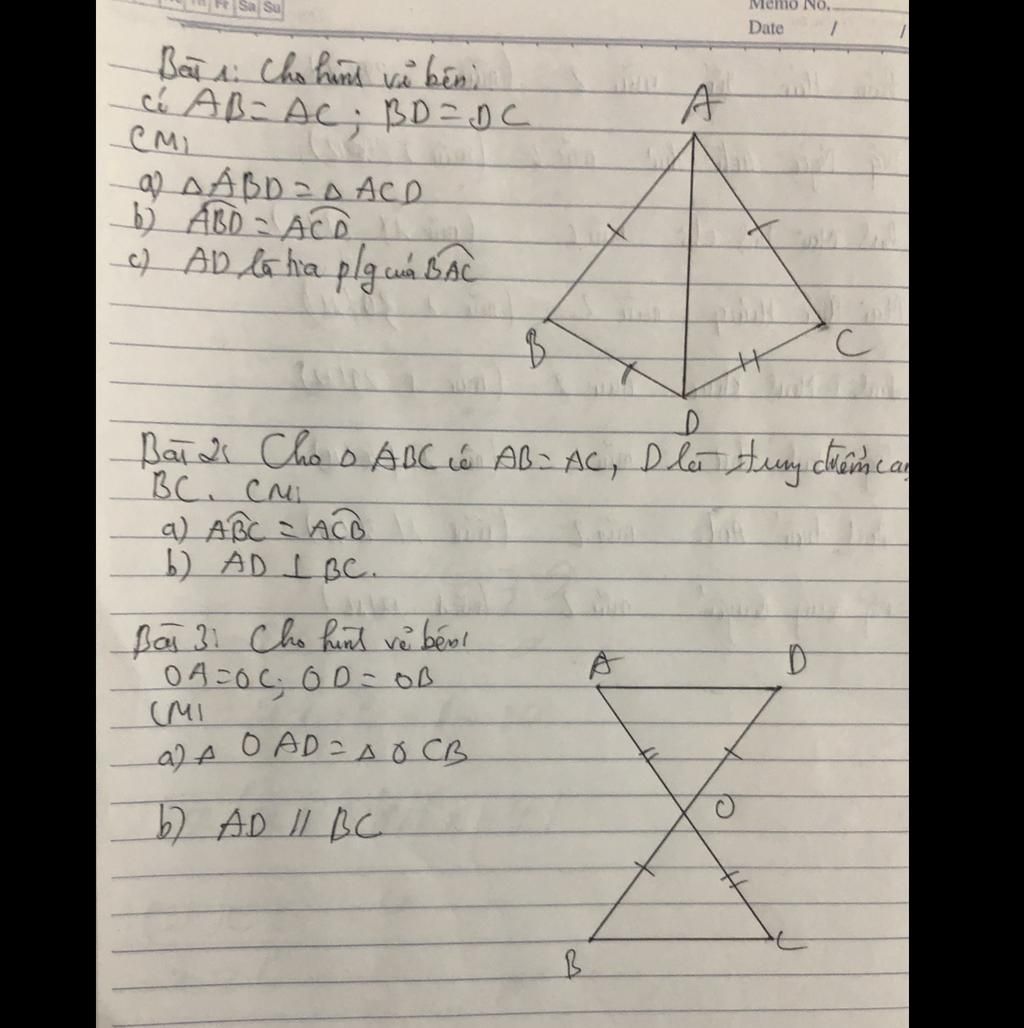 Fr Sa Su
Memo No.
Date / /
Bài 1: Cho hình vẽ bên:
có AB = AC ; BD = DC
CM:
a) Δ ABD = Δ ACD
b) ABD = ACD
c) AD là tia p/g của BAC
A
B
C
D
Bài 2: Cho Δ ABC có AB = AC, D là trung điểm cạ
BC. CM:
a) ABC = ACB
b) AD ⊥ BC.
Bài 3: Cho hình vẽ bên:
OA = OC; OD = OB
CM:
a) Δ OAD = Δ OCB
b) AD // BC
A D
O
B C